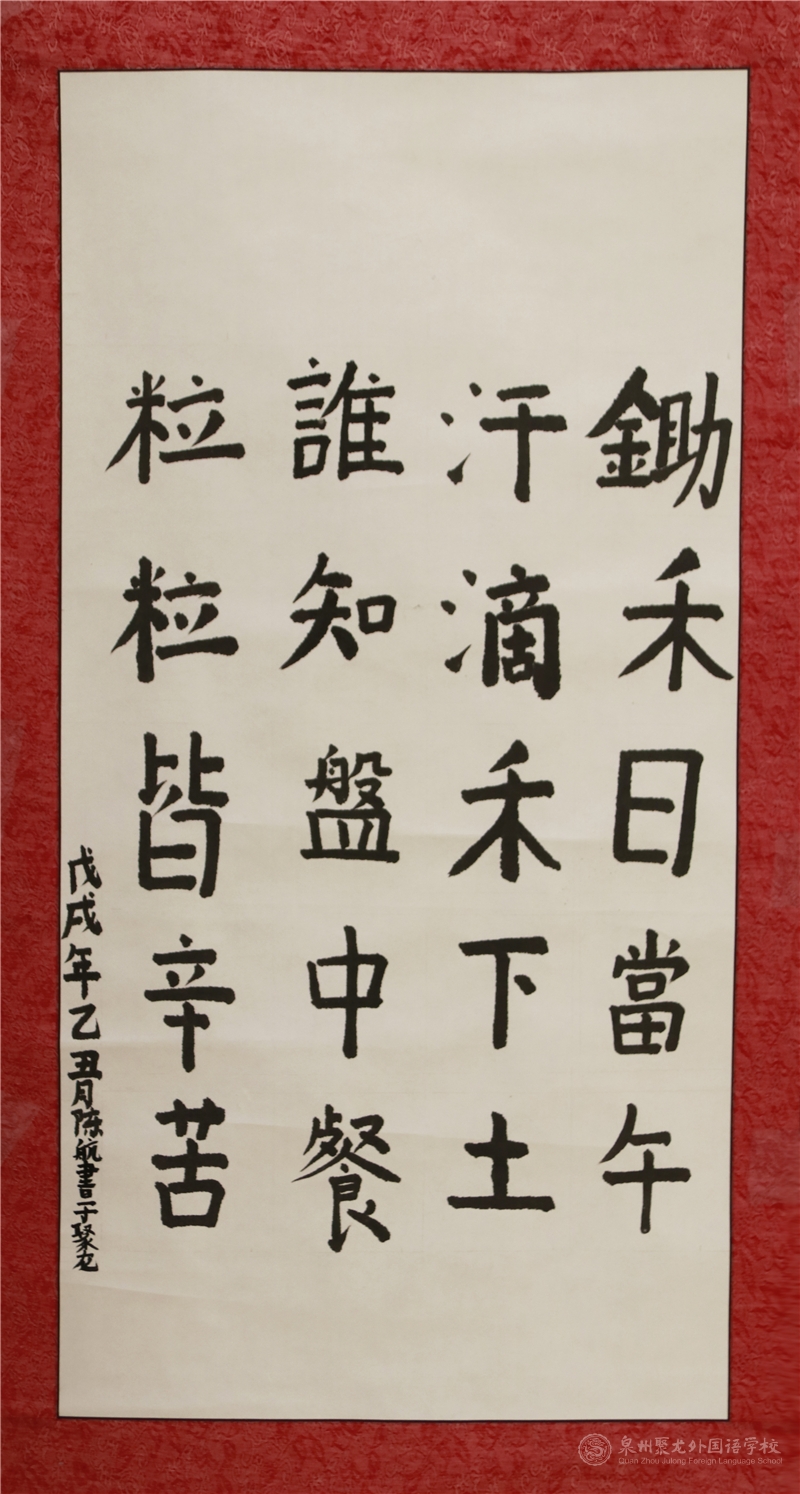 鋤禾日當午
汗滴禾下土
誰知盤中餐
粒粒皆辛苦
戊戌年乙丑月陈航書于聚龙
泉州聚龙外国语学校
Quan Zhou Julong Foreign Language School